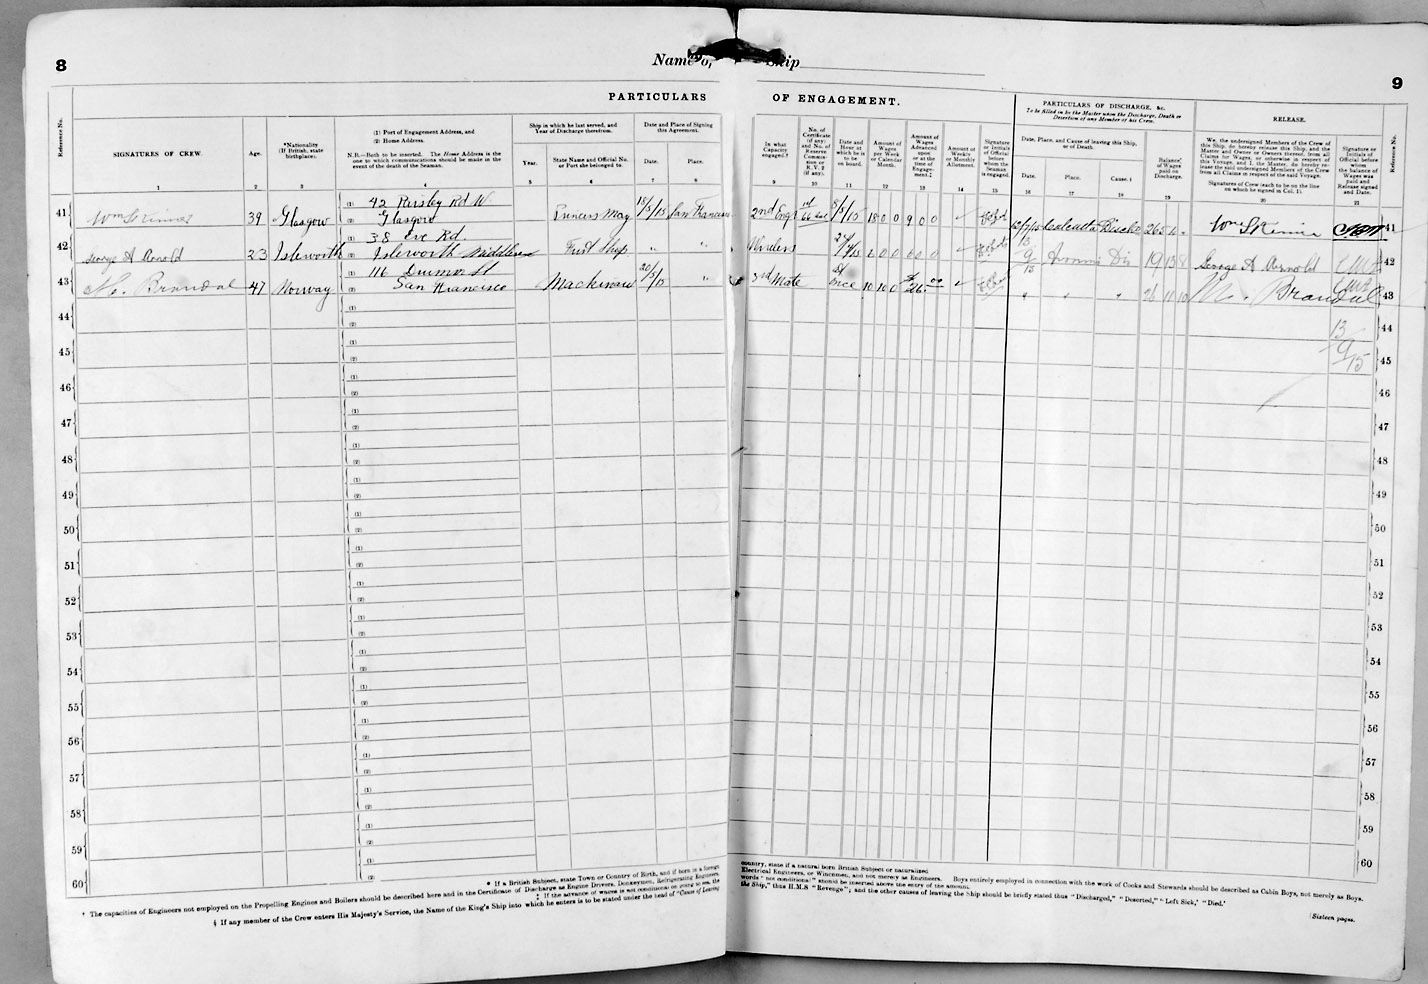 8
Name of Ship
9
PARTICULARS OF ENGAGEMENT.
PARTICULARS OF DISCHARGE, &c.
To be filled in by the Master upon the Discharge, Death or Desertion of any Member of his Crew.
RELEASE.
Reference No.
SIGNATURES OF CREW.
Age.
*Nationality
(If British, state birthplace).
(1) Port of Engagement Address, and
(2) Home Address.
N.B.—Both to be inserted. The Home Address is the one to which communications should be made in the event of the death of the Seaman.
Ship in which he last served, and Year of Discharge therefrom.
Year.
State Name and Official No. or Port she belonged to.
Date and Place of Signing this Agreement.
Date.
Place.
In what Capacity engaged.†
No. of Certificate (if any) and No. of Reserve Commission or R.V. 2 (if any).
Date and Hour at which he is to be on board.
Amount of Wages per Week or Calendar Month.
Amount of Wages Advanced upon or at the time of Engagement.‡
Amount of Weekly or Monthly Allotment.
Signature or Initials of Official before whom the Seaman is engaged.
Date, Place, and Cause of leaving this Ship, or of Death.
Date.
Place.
Cause.§
Balance of Wages paid on Discharge.
We, the undersigned Members of the Crew of this Ship, do hereby release this Ship, and the Master and Owner or Owners thereof, from all Claims for Wages, or otherwise in respect of this Voyage, and I, the Master, do hereby release the said undersigned Members of the Crew from all Claims in respect of the said Voyage.
Signatures of Crew (each to be on the line on which he signed in Col. 1).
Signature or Initials of Official before whom the balance of Wages was paid and Release signed and Date.
Reference No.
1 2 3 4 5 6 7 8 9 10 11 12 13 14 15 16 17 18 19 20 21
41 39 Glasgow (1) 42 Rd W
(2) Glasgow Princess May 18/3/15 San Francisco 2nd Engr 18 0 0 9 0 0 Calcutta 41
42 George A Arnold 23 Isleworth (1) 38 Eve Rd.
(2) Isleworth Middlesex First Ship " " Wireless Dis 19 13 8 George A Arnold 42
43 Brandal 47 Norway (1) 116 St
(2) San Francisco Mackinaw 20/5/15 " 3rd Mate once 10 10 0 " " " 26 11 10 Brandal 43
44 44
13/9/15
45 45
46 46
47 47
48 48
49 49
50 50
51 51
52 52
53 53
54 54
55 55
56 56
57 57
58 58
59 59
60 60
* If a British Subject, state Town or Country of Birth, and if born in a foreign country, state if a natural born British Subject or naturalized
† The capacities of Engineers not employed on the Propelling Engines and Boilers should be described here and in the Certificate of Discharge as Engine Drivers, Donkeymen, Refrigerating Engineers, Electrical Engineers, or Winchmen, and not merely as Engineers. Boys entirely employed in connection with the work of Cooks and Stewards should be described as Cabin Boys, not merely as Boys.
‡ If the advance of wages is not conditional on going to sea, the words "not conditional" should be inserted above the entry of the amount.
§ If any member of the Crew enters His Majesty's Service, the Name of the King's Ship into which he enters is to be stated under the head of "Cause of Leaving the Ship," thus H.M.S "Revenge"; and the other causes of leaving the Ship should be briefly stated thus "Discharged," "Deserted," "Left Sick,' "Died.'
[Sixteen pages.